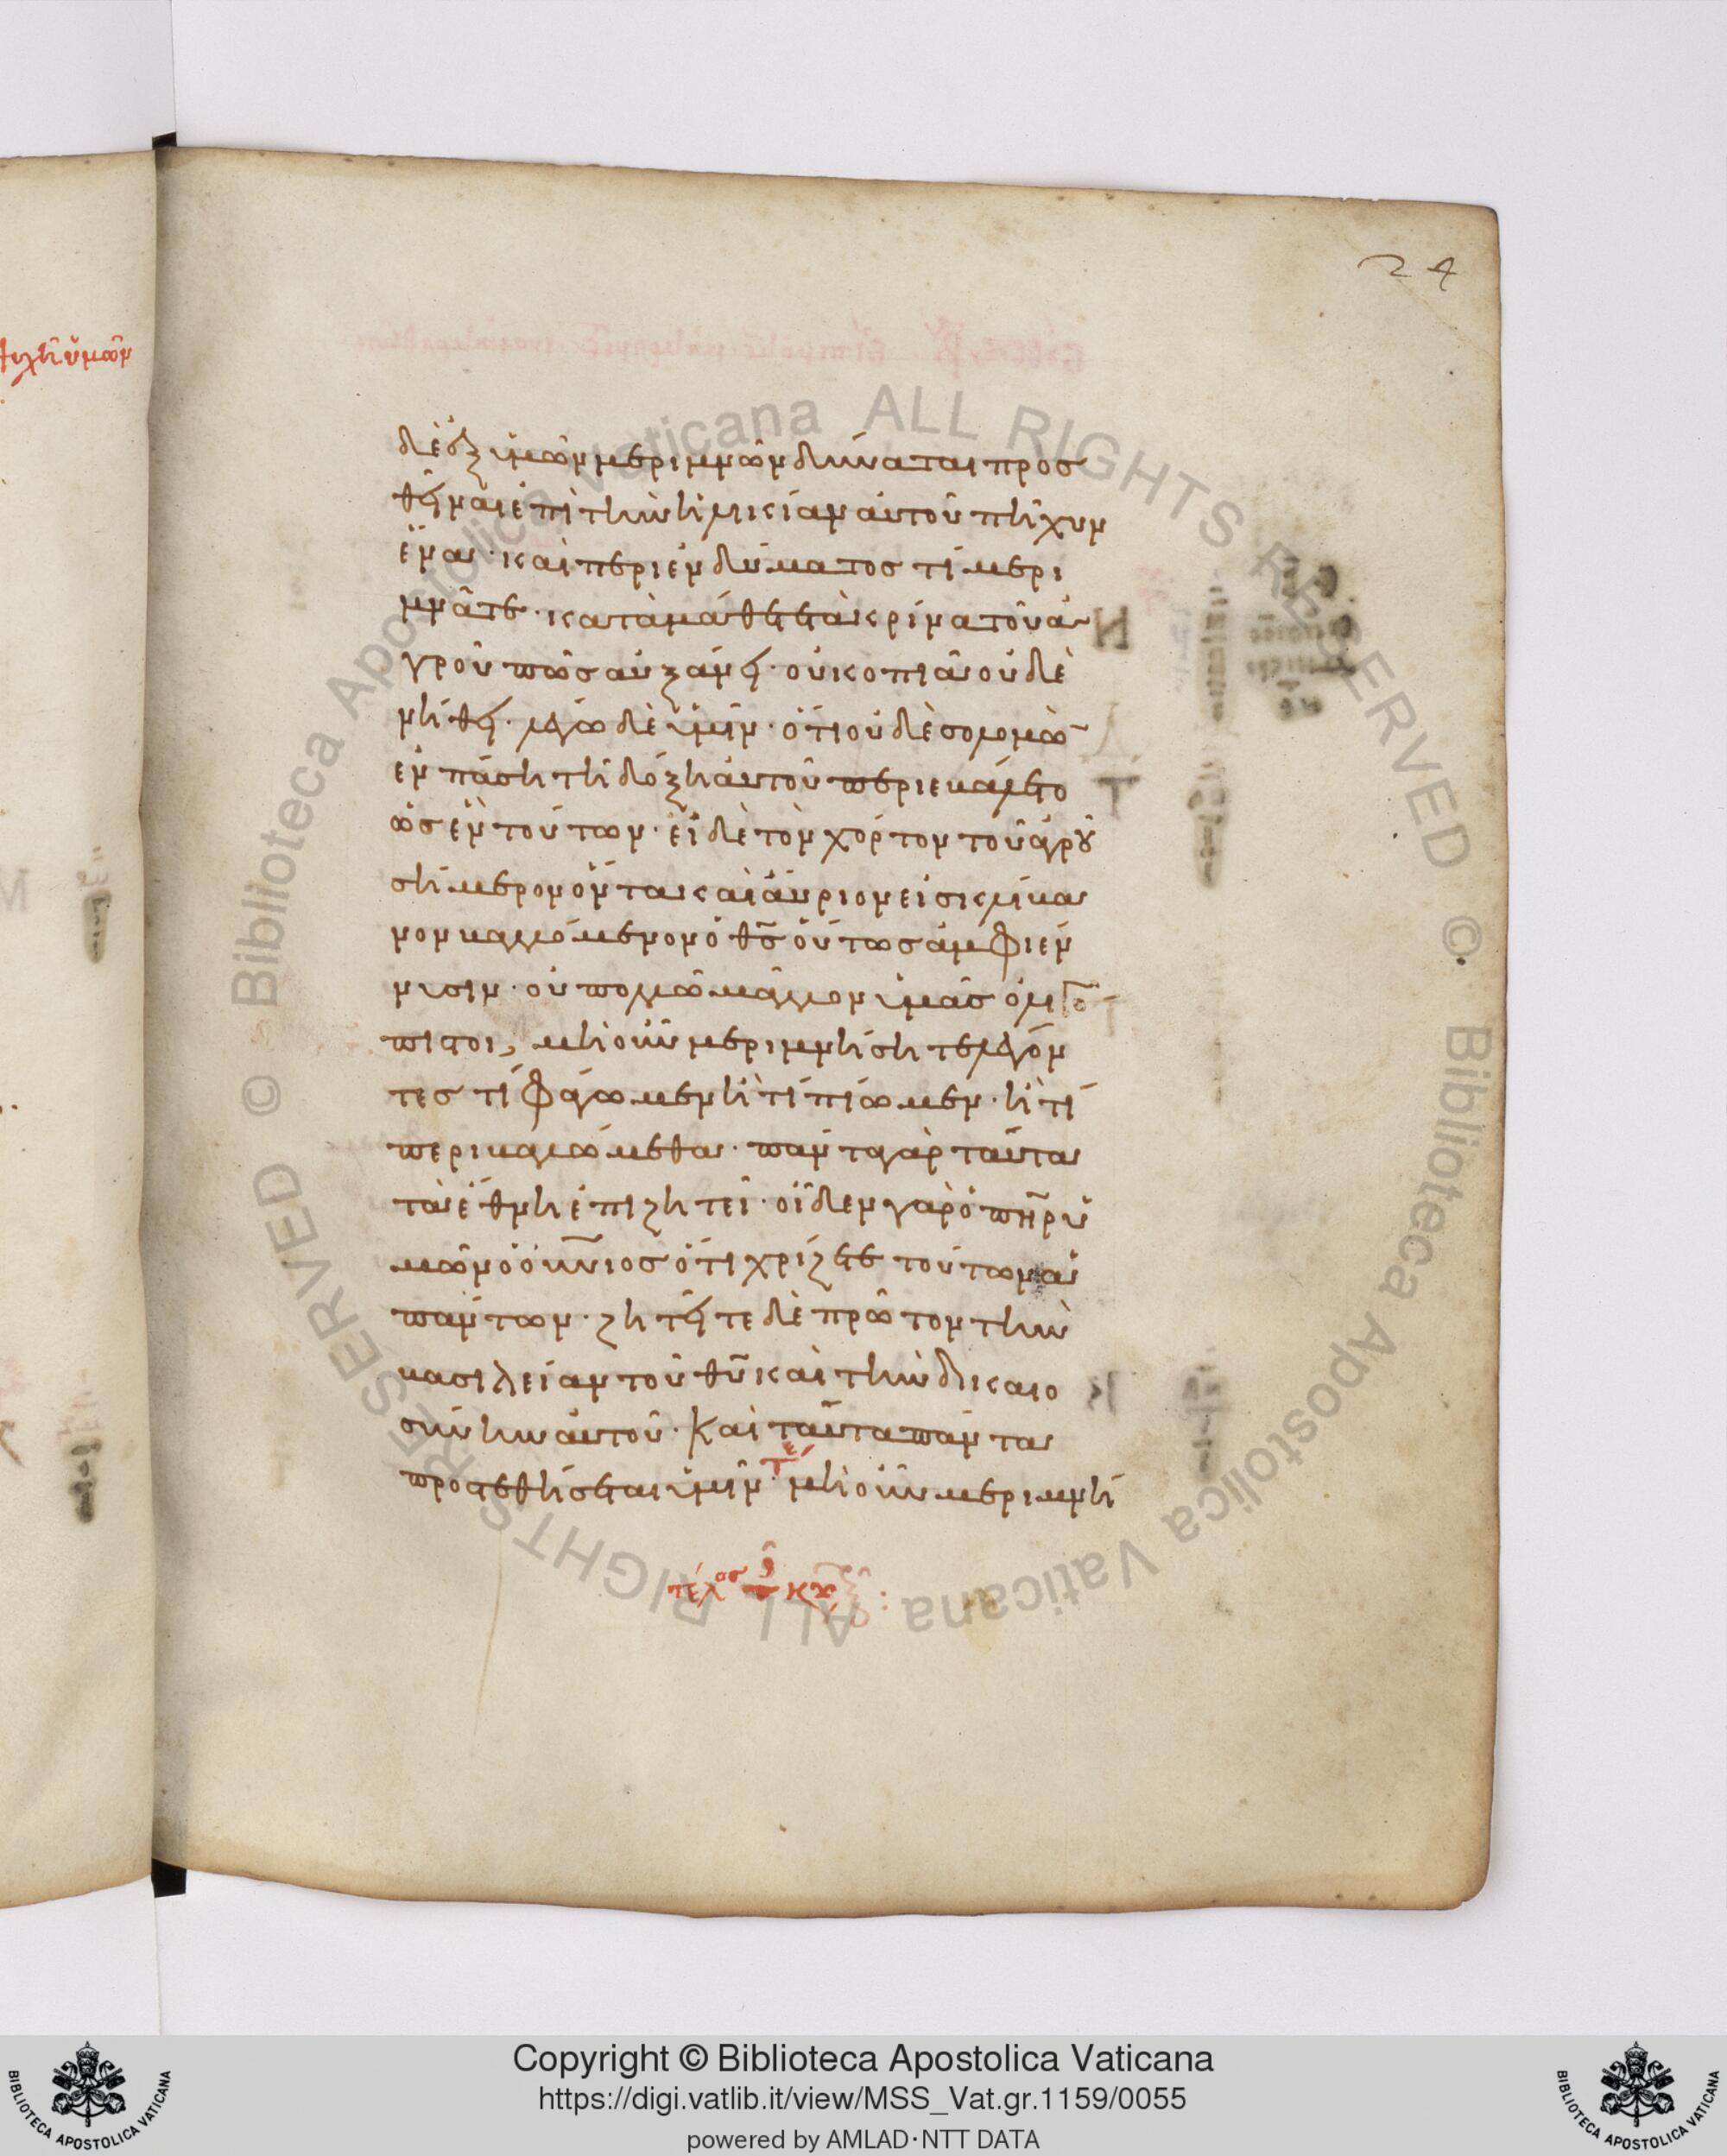 24
ψυχῆ ὑμῶν
δὲ ἐξ ὑμῶν μεριμνῶν δύναται προσ
θεῖναι ἐπὶ τὴν ἡλικίαν αὐτοῦ πῆχυν
ἕνα· καὶ περὶ ἐνδύματος τί μερι
μνᾶτε· καταμάθετε τὰ κρίνα τοῦ ἀ
γροῦ πῶς αὐξάνει· οὐ κοπιᾶ οὐδὲ
νήθει· λέγω δὲ ὑμῖν· ὅτι οὐδὲ σολομὼ
ἐν πάση τῆ δόξη αὐτοῦ περιεβάλετο
ὡς ἓν τούτων· εἰ δὲ τὸν χόρτον τοῦ ἀγροῦ
σήμερον ὄντα καὶ αὔριον εἰς κλίβα
νον βαλλόμενον ὁ θς̅ οὕτως ἀμφιέν
νυσιν· οὐ πολλῶ μᾶλλον ὑμᾶς ὀλιγό
πιστοι, μὴ οὖν μεριμνήσητε λέγον
τες τί φάγωμεν ἢ τί πίωμεν· ἢ τί
περιβαλώμεθα· πάντα γὰρ ταῦτα
τὰ ἔθνη ἐπιζητεῖ· οἶδεν γὰρ ὁ πη̅ρ ὑ
μῶν ὁ οὐνιος ὅτι χρήζετε τούτων ἁ
πάντων· ζητεῖτε δὲ πρῶτον τὴν
βασιλείαν τοῦ θυ̅ καὶ τὴν δικαιο
σύνην αὐτοῦ· Καὶ ταῦτα πάντα
προστεθήσεται ὑμῖν· μὴ οὖν μεριμνή
Copyright © Biblioteca Apostolica Vaticana
https://digi.vatlib.it/view/MSS_Vat.gr.1159/0055
powered by AMLAD·NTT DATA
BIBLIOTECA APOSTOLICA VATICANA
BIBLIOTECA APOSTOLICA VATICANA
© Biblioteca Apostolica Vaticana ALL RIGHTS RESERVED © Biblioteca Apostolica Vaticana ALL RIGHTS RESERVED